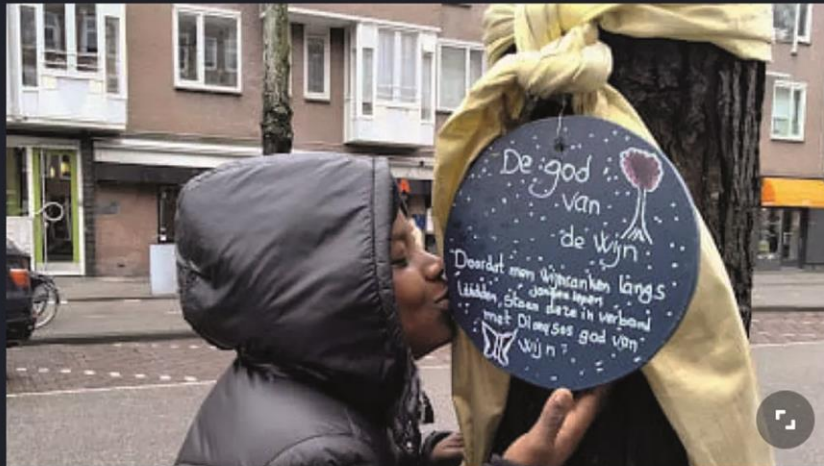 De god
van
de Wijn
Doordat men wijnranken langs
jonge iepen
leidden, staan deze in verband
met Dionysos god van
Wijn?